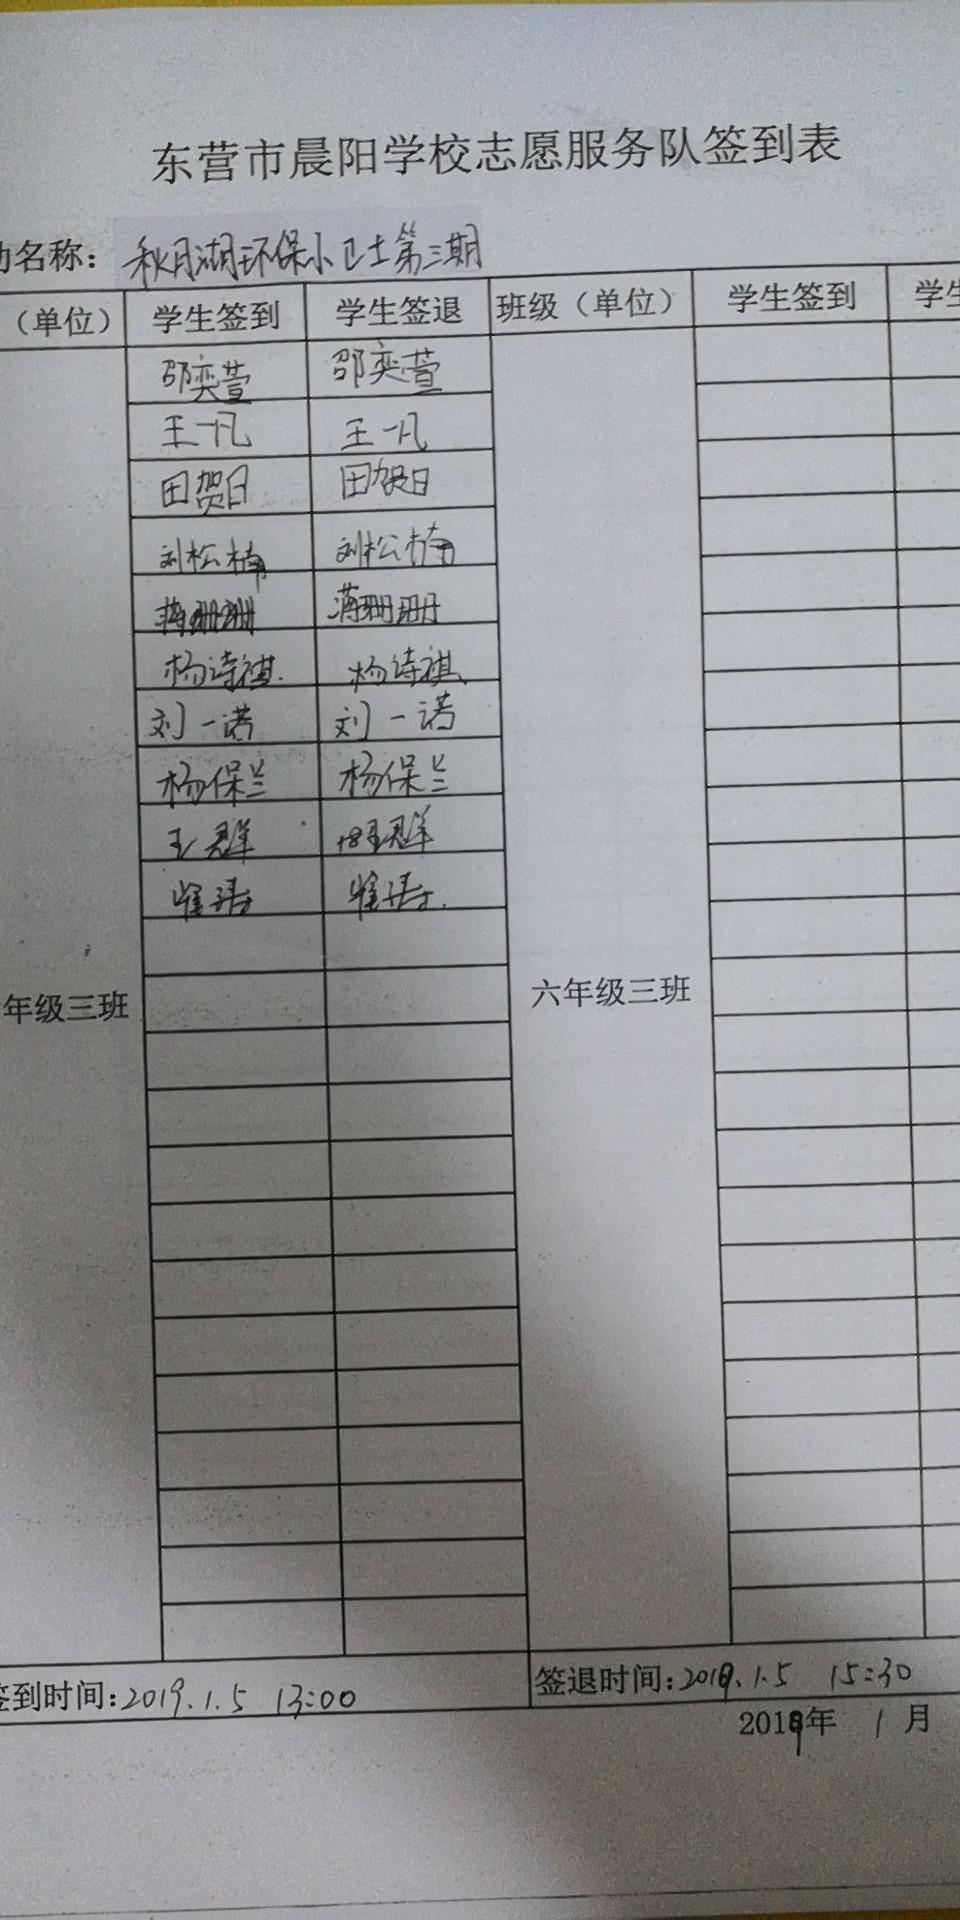 东营市晨阳学校志愿服务队签到表
动名称：秋月湖环保小卫士第三期
（单位） 学生签到 学生签退 班级（单位） 学生签到 学生
邵奕萱 邵奕萱
王一凡 王一凡
田贺日 田贺日
刘松楠 刘松楠
蒋珊珊 蒋珊珊
杨诗祺 杨诗祺
刘一诺 刘一诺
杨保兰 杨保兰
王群 王群
崔 崔
年级三班 六年级三班
签到时间：2019.1.5 13:00 签退时间：2019.1.5 15:30
2019年 1月